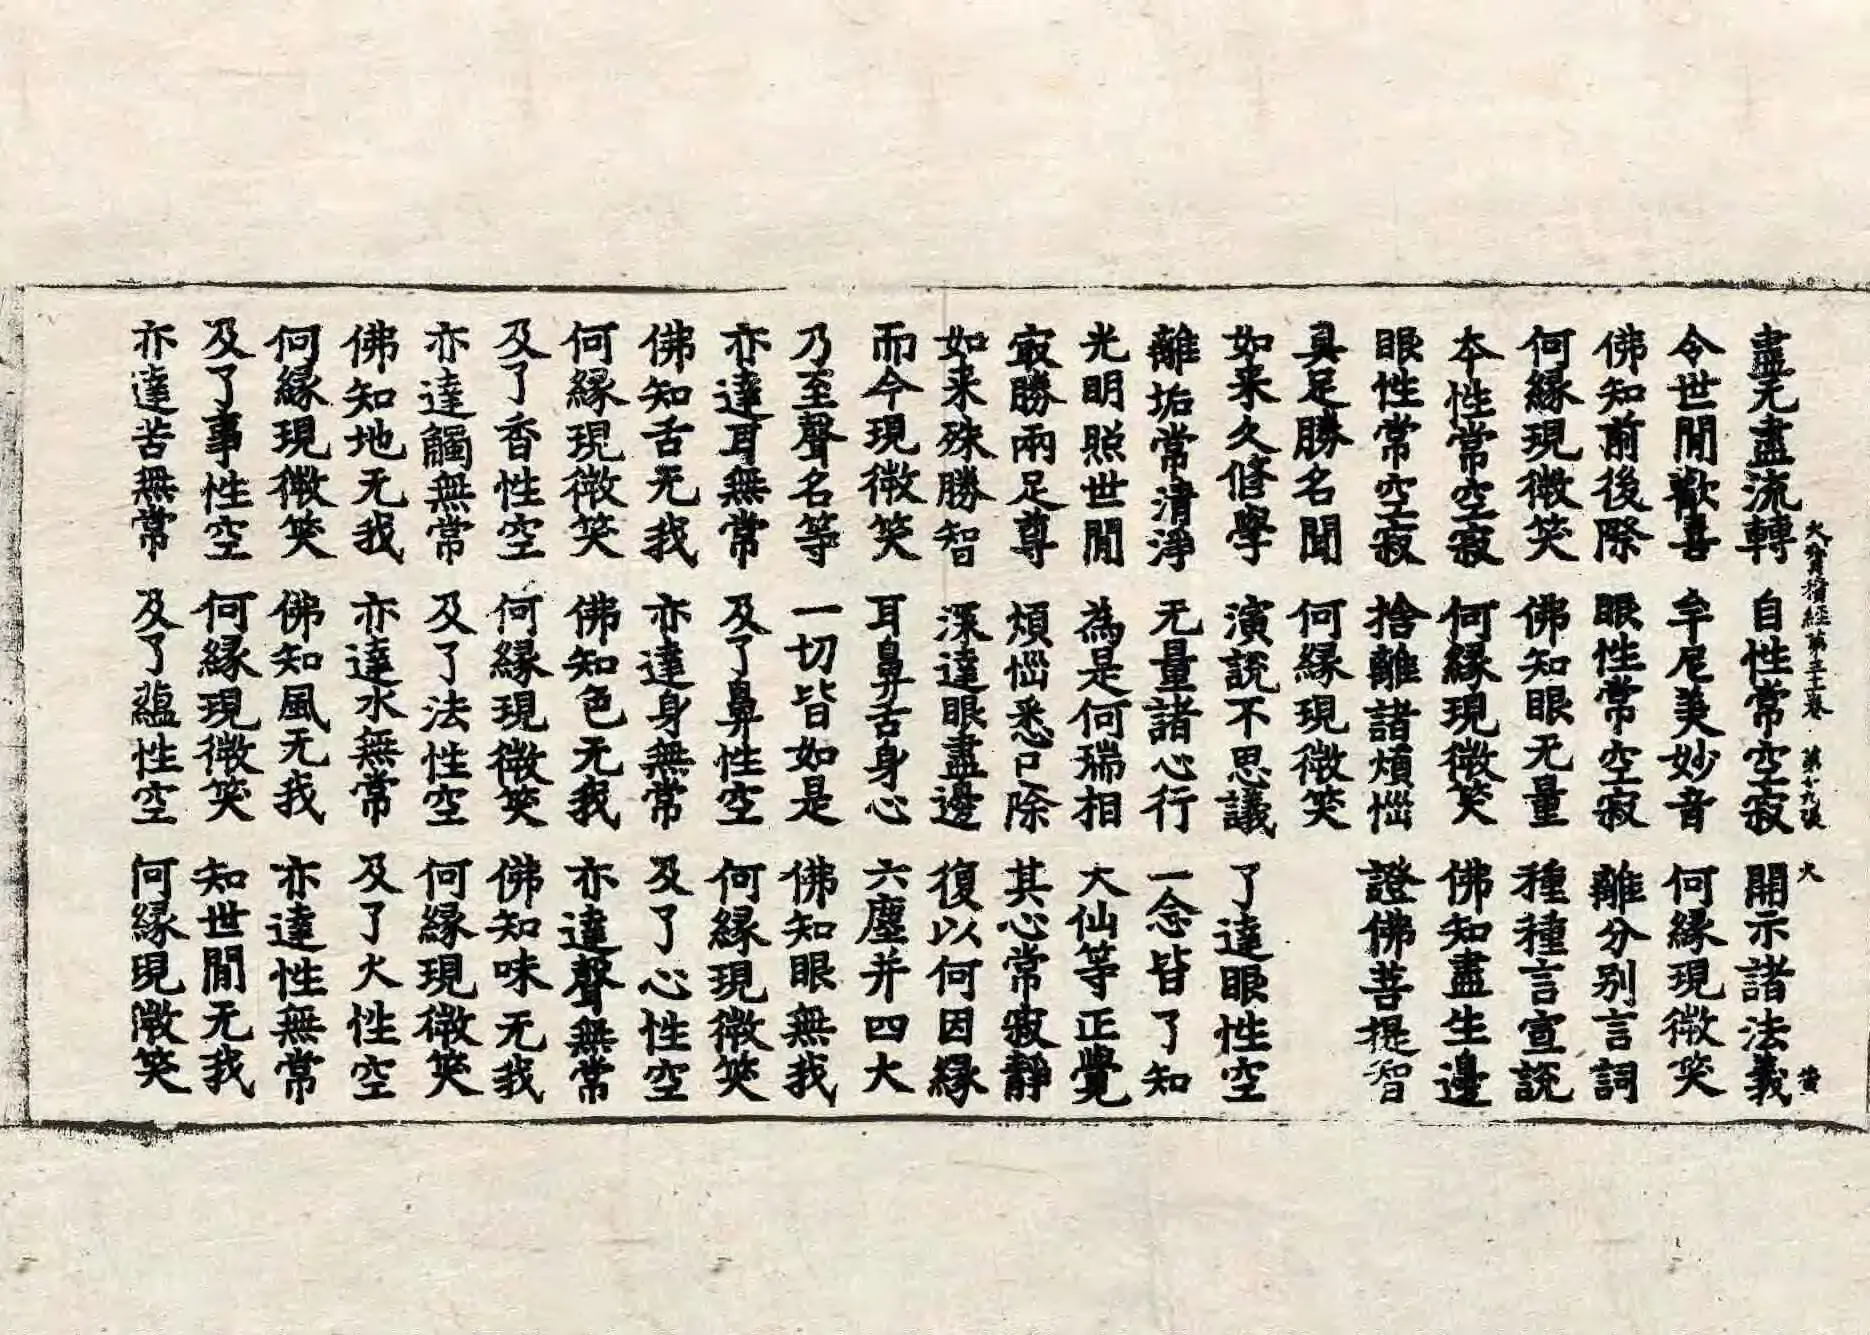 盡无盡流轉 自性常空寂 開示諸法義
大寶積經第三十卷 第十九張 大 黃
令世間歡喜 牟尼美妙音 何緣現微笑
佛知前後際 眼性常空寂 離分別言詞
何緣現微笑 佛知眼无量 種種言宣說
本性常空寂 何緣現微笑 佛知盡生邊
眼性常空寂 捨離諸煩惱 證佛菩提智
具足勝名聞 何緣現微笑
如来久修學 演說不思議 了達眼性空
離垢常清淨 无量諸心行 一念皆了知
光明照世間 為是何瑞相 大仙等正覺
㝡勝兩足尊 煩惱悉已除 其心常寂靜
如来殊勝智 深達眼盡邊 復以何因緣
而今現微笑 耳鼻舌身心 六塵并四大
乃至聲名等 一切皆如是 佛知眼無我
亦達耳無常 及了鼻性空 何緣現微笑
佛知舌无我 亦達身無常 及了心性空
何緣現微笑 佛知色无我 亦達聲無常
及了香性空 何緣現微笑 佛知味无我
亦達觸無常 及了法性空 何緣現微笑
佛知地无我 亦達水無常 及了火性空
何緣現微笑 佛知風无我 亦達性無常
及了事性空 何緣現微笑 知世間无我
亦達苦無常 及了蘊性空 何緣現微笑